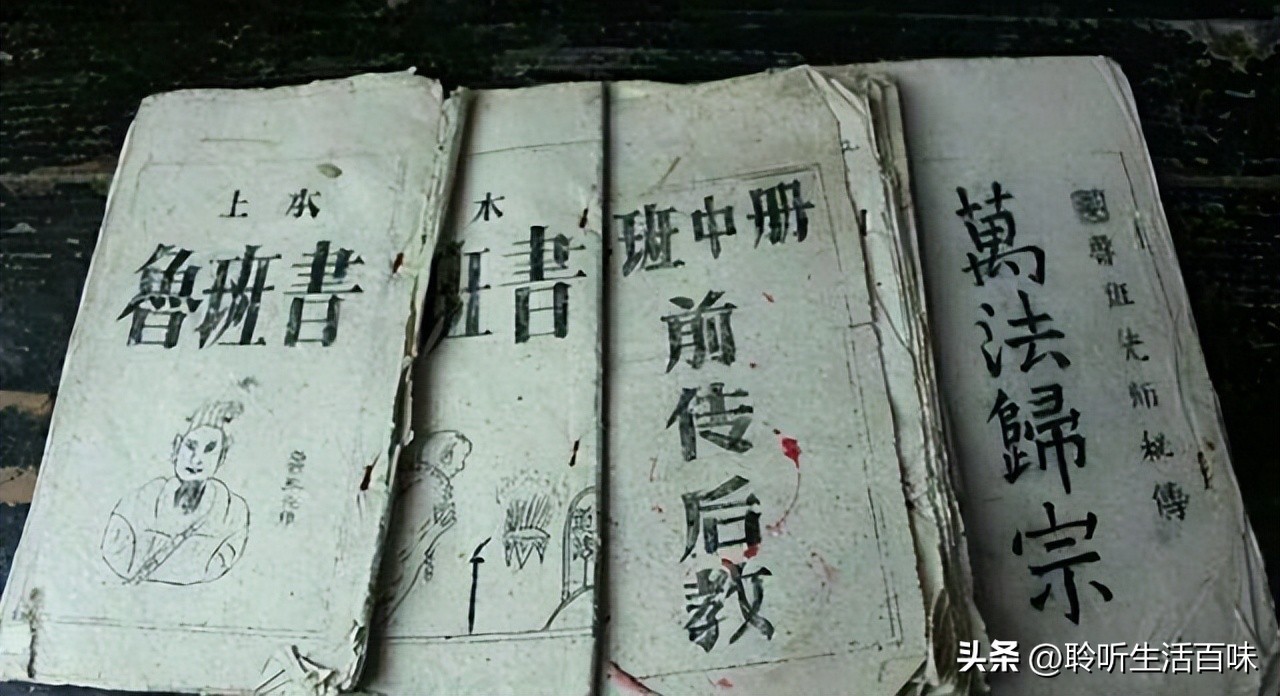 上本
魯班書
木
班書
班中册
前传后教
魯班先师秘傳
萬法歸宗
头条 @聆听生活百味